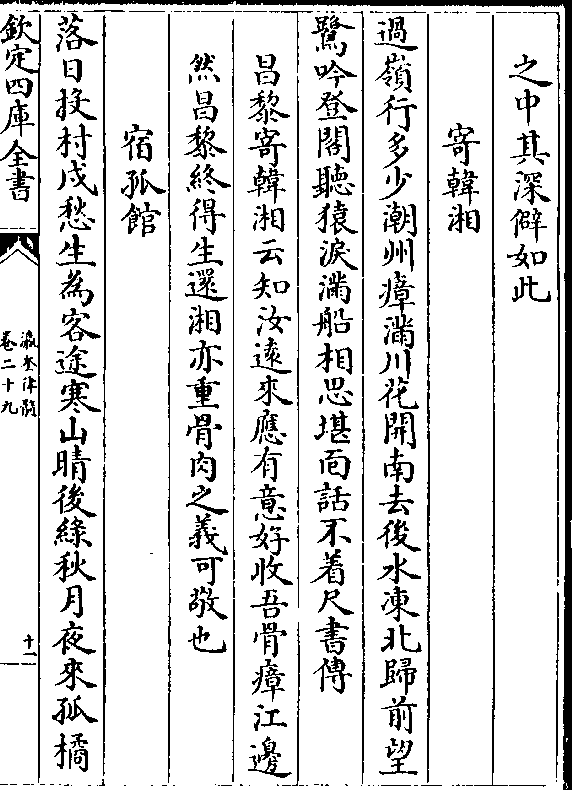 之中其深僻如此
寄韓湘
過嶺行多少潮州瘴滿川花開南去後水凍北歸前望
鷺吟登閣聽猿淚滿船相思堪面話不着尺書傳
昌黎寄韓湘云知汝遠來應有意好收吾骨瘴江邊
然昌黎終得生還湘亦重骨肉之義可敬也
宿孤館
落日投村戍愁生為客途寒山晴後綠秋月夜來孤橘
欽定四庫全書
瀛奎律髓
卷二十九
十一